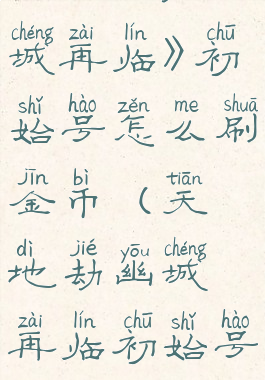 chéng zài lín chū
城再临》初
shǐ hào zěn me shuā
始号怎么刷
jīn bì tiān
金币（天
dì jié yōu chéng
地劫幽城
zài lín chū shǐ hào
再临初始号